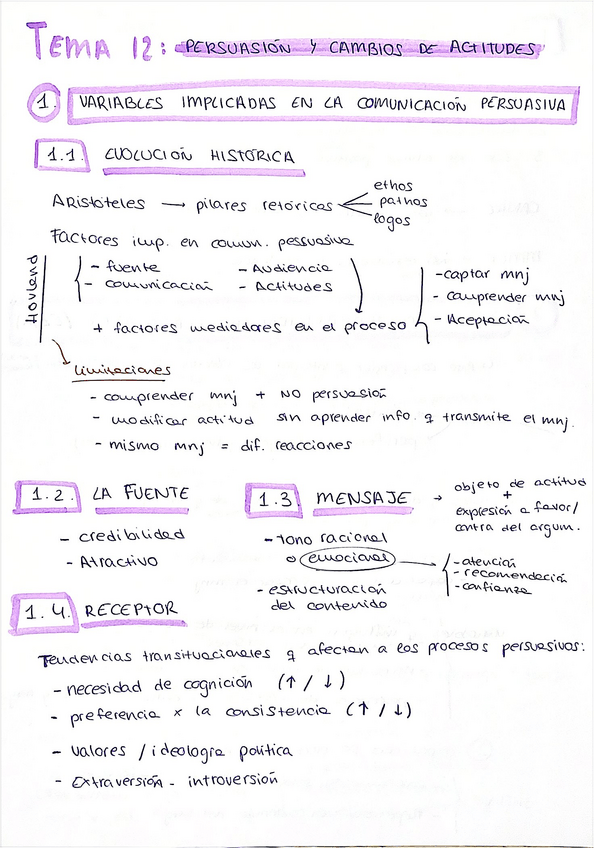 TEMA 12: PERSUASIÓN Y CAMBIOS DE ACTITUDES
1. VARIABLES IMPLICADAS EN LA COMUNICACIÓN PERSUASIVA
1.1. EVOLUCIÓN HISTÓRICA
Aristóteles → pilares retóricos
ethos
pathos
logos
Factores imp. en comun. persuasiva
Hovland
- fuente - Audiencia
- comunicación - Actitudes
+ factores mediadores en el proceso
- captar mnj
- comprender mnj
- Aceptación
Limitaciones
- comprender mnj + NO persuasión
- modificar actitud sin aprender info. q transmite el mnj.
- mismo mnj = dif. reacciones
1.2. LA FUENTE
- credibilidad
- Atractivo
1.3 MENSAJE →
objeto de actitud
+
expresión a favor/
contra del argum.
- Tono racional
o emocional →
- atención
- recomendación
- confianza
- estructuración
del contenido
1.4. RECEPTOR
Tendencias transituacionales q afectan a los procesos persuasivos:
- necesidad de cognición (↑ / ↓)
- preferencia x la consistencia (↑ / ↓)
- valores / ideología política
- Extraversión - introversión